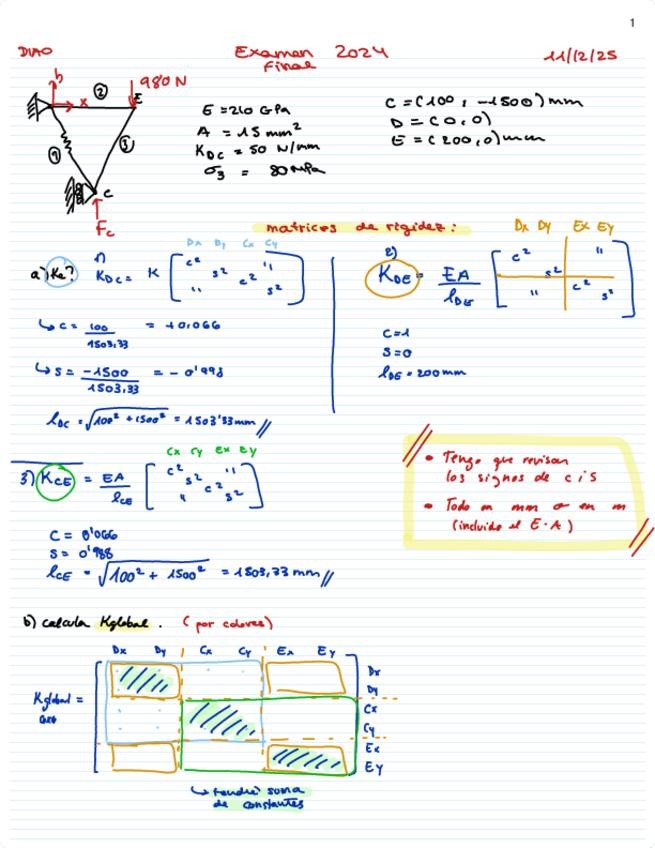 1
DIAO
Examen 2024
Final
11/12/25
b
x
②
980 N
E
①
③
C
Fc
E = 210 GPa
A = 15 mm²
K_DC = 50 N/mm
σ₃ = 80 MPa
C = (100, -1500) mm
D = (0,0)
E = (200,0) mm
matrices de rigidez:
a) Ke?
1)
K_DC = K
Dx Dy Cx Cy
c² "
s²
c²
" s²
↳ c = 100/1503,33 = +0,066
↳ s = -1500/1503,33 = -0'998
l_DC = √100² + 1500² = 1503'33 mm //
2)
K_DE = EA/l_DE
Dx Dy Ex Ey
c² "
s²
" c²
s²
c=1
s=0
l_DE = 200 mm
3) K_CE = EA/l_CE
Cx Cy Ex Ey
c² "
s²
" c²
s²
c = 0'066
s = 0'988
l_CE = √100² + 1500² = 1503,33 mm //
• Tengo que revisar
los signos de c i s
• Todo en mm o en m
(incluido el E·A)
b) calcula Kglobal. (por colores)
Dx Dy Cx Cy Ex Ey
Kglobal =
Dx
Dy
Cx
Cy
Ex
Ey
↳ tendré suma
de constantes